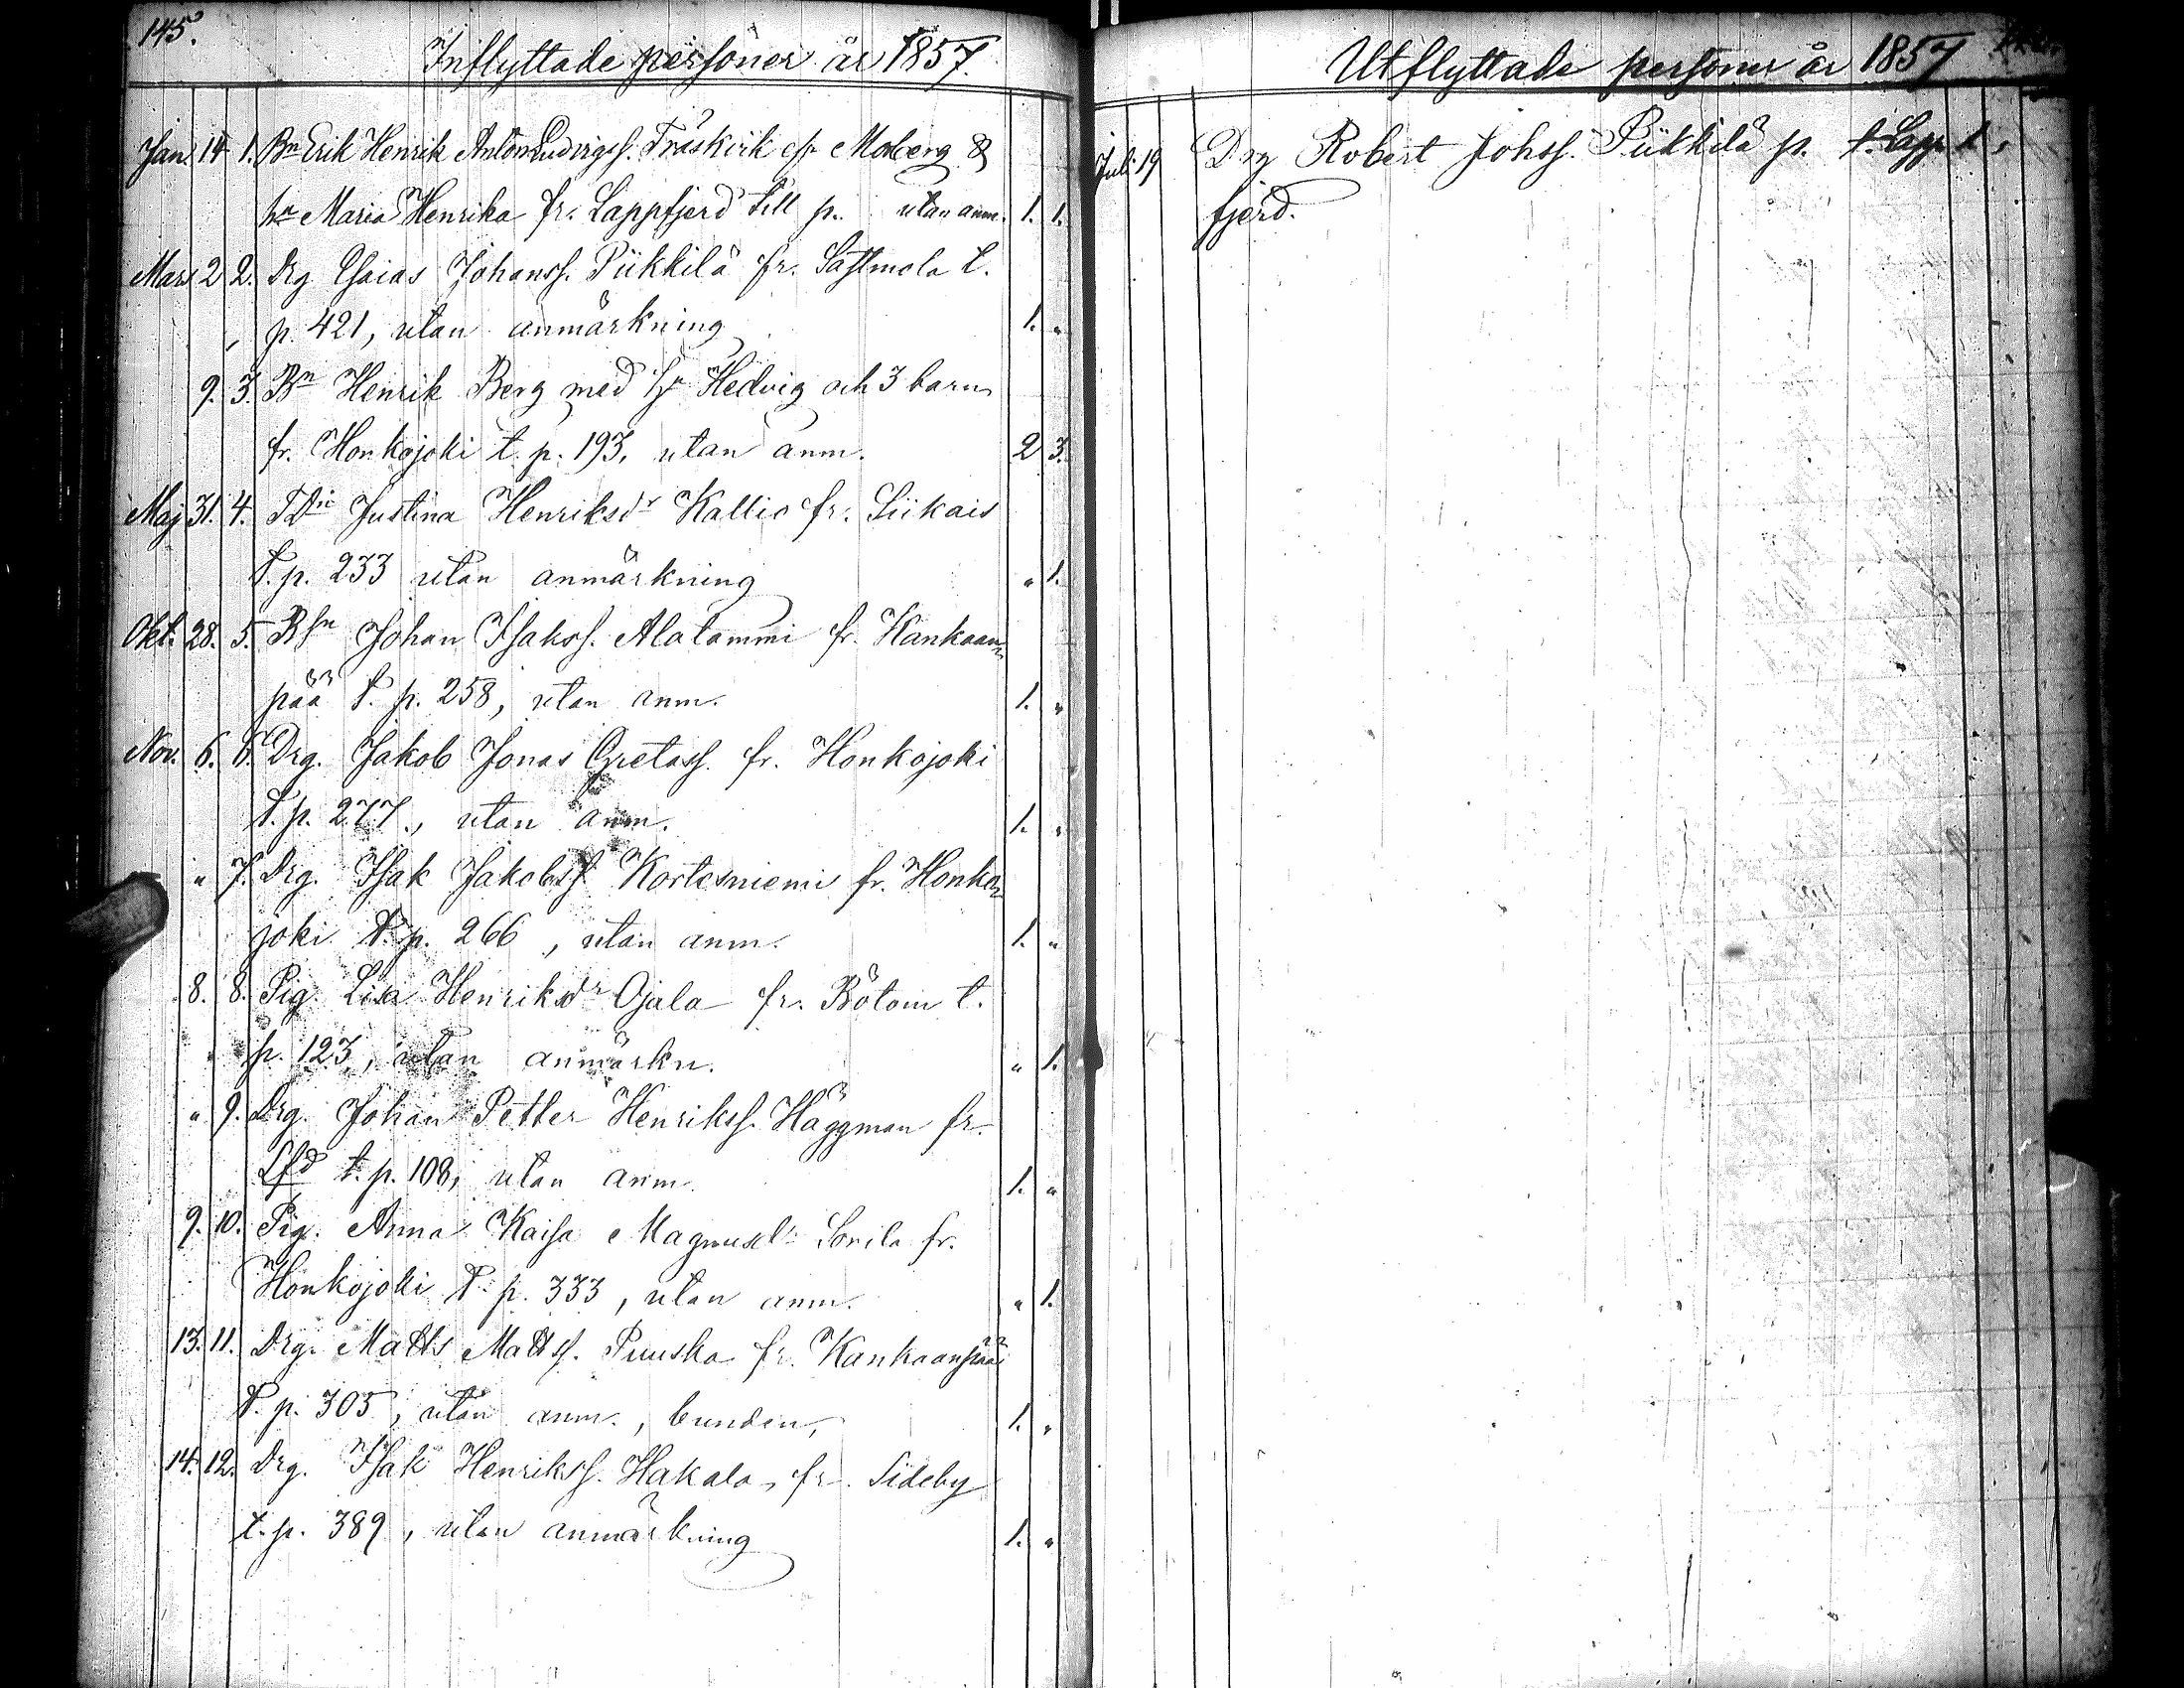 145.
Inflyttade personer år 1857.
Jan. 14 1. Bn Erik Henrik Anton Ludvigss. Träskvik el. Moberg &
hu Maria Henrika fr. Lappfjerd till p. utan anm. 1. 1.
Mars 2 2. Drg Esaias Johanss. Piikkilä fr. Sastmola t.
p. 421, utan anmärkning 1. "
9. 3. Bn Henrik Berg med hu Hedvig och 3 barn
fr. Honkojoki t. p. 193, utan anm. 2 3.
Maj 31. 4. Justina Henriksdr Kallio fr. Siikais
t. p. 233 utan anmärkning " 1.
Okt. 28. 5. Bsn Johan Isakss. Alatammi fr. Kankaan=
pää t. p. 258, utan anm. 1. "
Nov. 6. 6. Drg. Jakob Jonas Gretass. fr. Honkojoki
t. p. 277., utan anm. 1. "
" 7. Drg. Isak Jakobss. Kortesniemi fr. Honko=
joki t. p. 266, utan anm. 1. "
8. 8. Pig. Lisa Henriksdr Ojala fr. Bötom t.
p. 123, utan anmärkn. " 1.
" 9. Drg. Johan Petter Henrikss. Häggman fr.
Lfd t. p. 108, utan anm. 1. "
9. 10. Pig. Anna Kaisa Magnusdr Sorila fr.
Honkojoki t. p. 333, utan anm. " 1.
13. 11. Drg. Matts Mattss. Puuska fr. Kankaanpää
t. p. 305, utan anm., bunden, 1. "
14. 12. Drg. Isak Henrikss. Hakala, fr. Sideby
t. p. 389, utan anmärkning 1. "
Utflyttade personer år 1857
Juli 19 Drg Robert Johss. Piikkilä p. t. Lapp
fjerd.